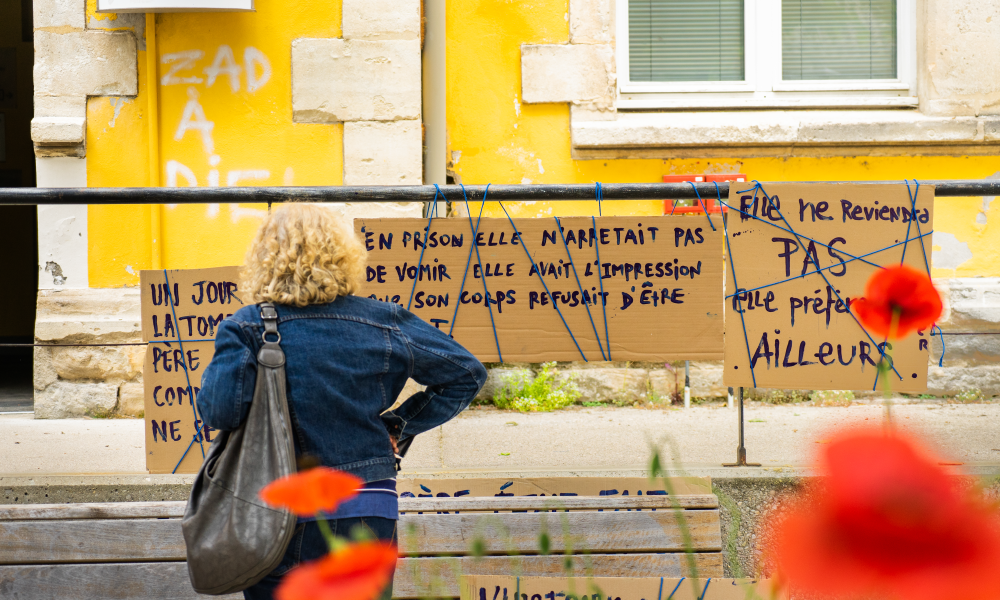 ZAD
À
DIE!
UN JOUR
LA TOM
PÈRE
COM
NE SE
EN PRISON ELLE N'ARRETAIT PAS
DE VOMIR ELLE AVAIT L'IMPRESSION
SON CORPS REFUSAIT D'ÊTRE
Elle ne Reviendra
PAS
Elle préfère
AILLEURS